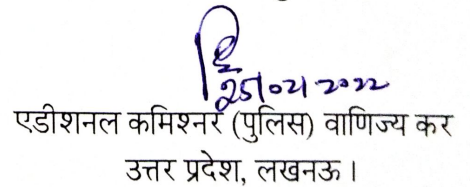 25/02/2022
एडीशनल कमिश्नर (पुलिस) वाणिज्य कर
उत्तर प्रदेश, लखनऊ।